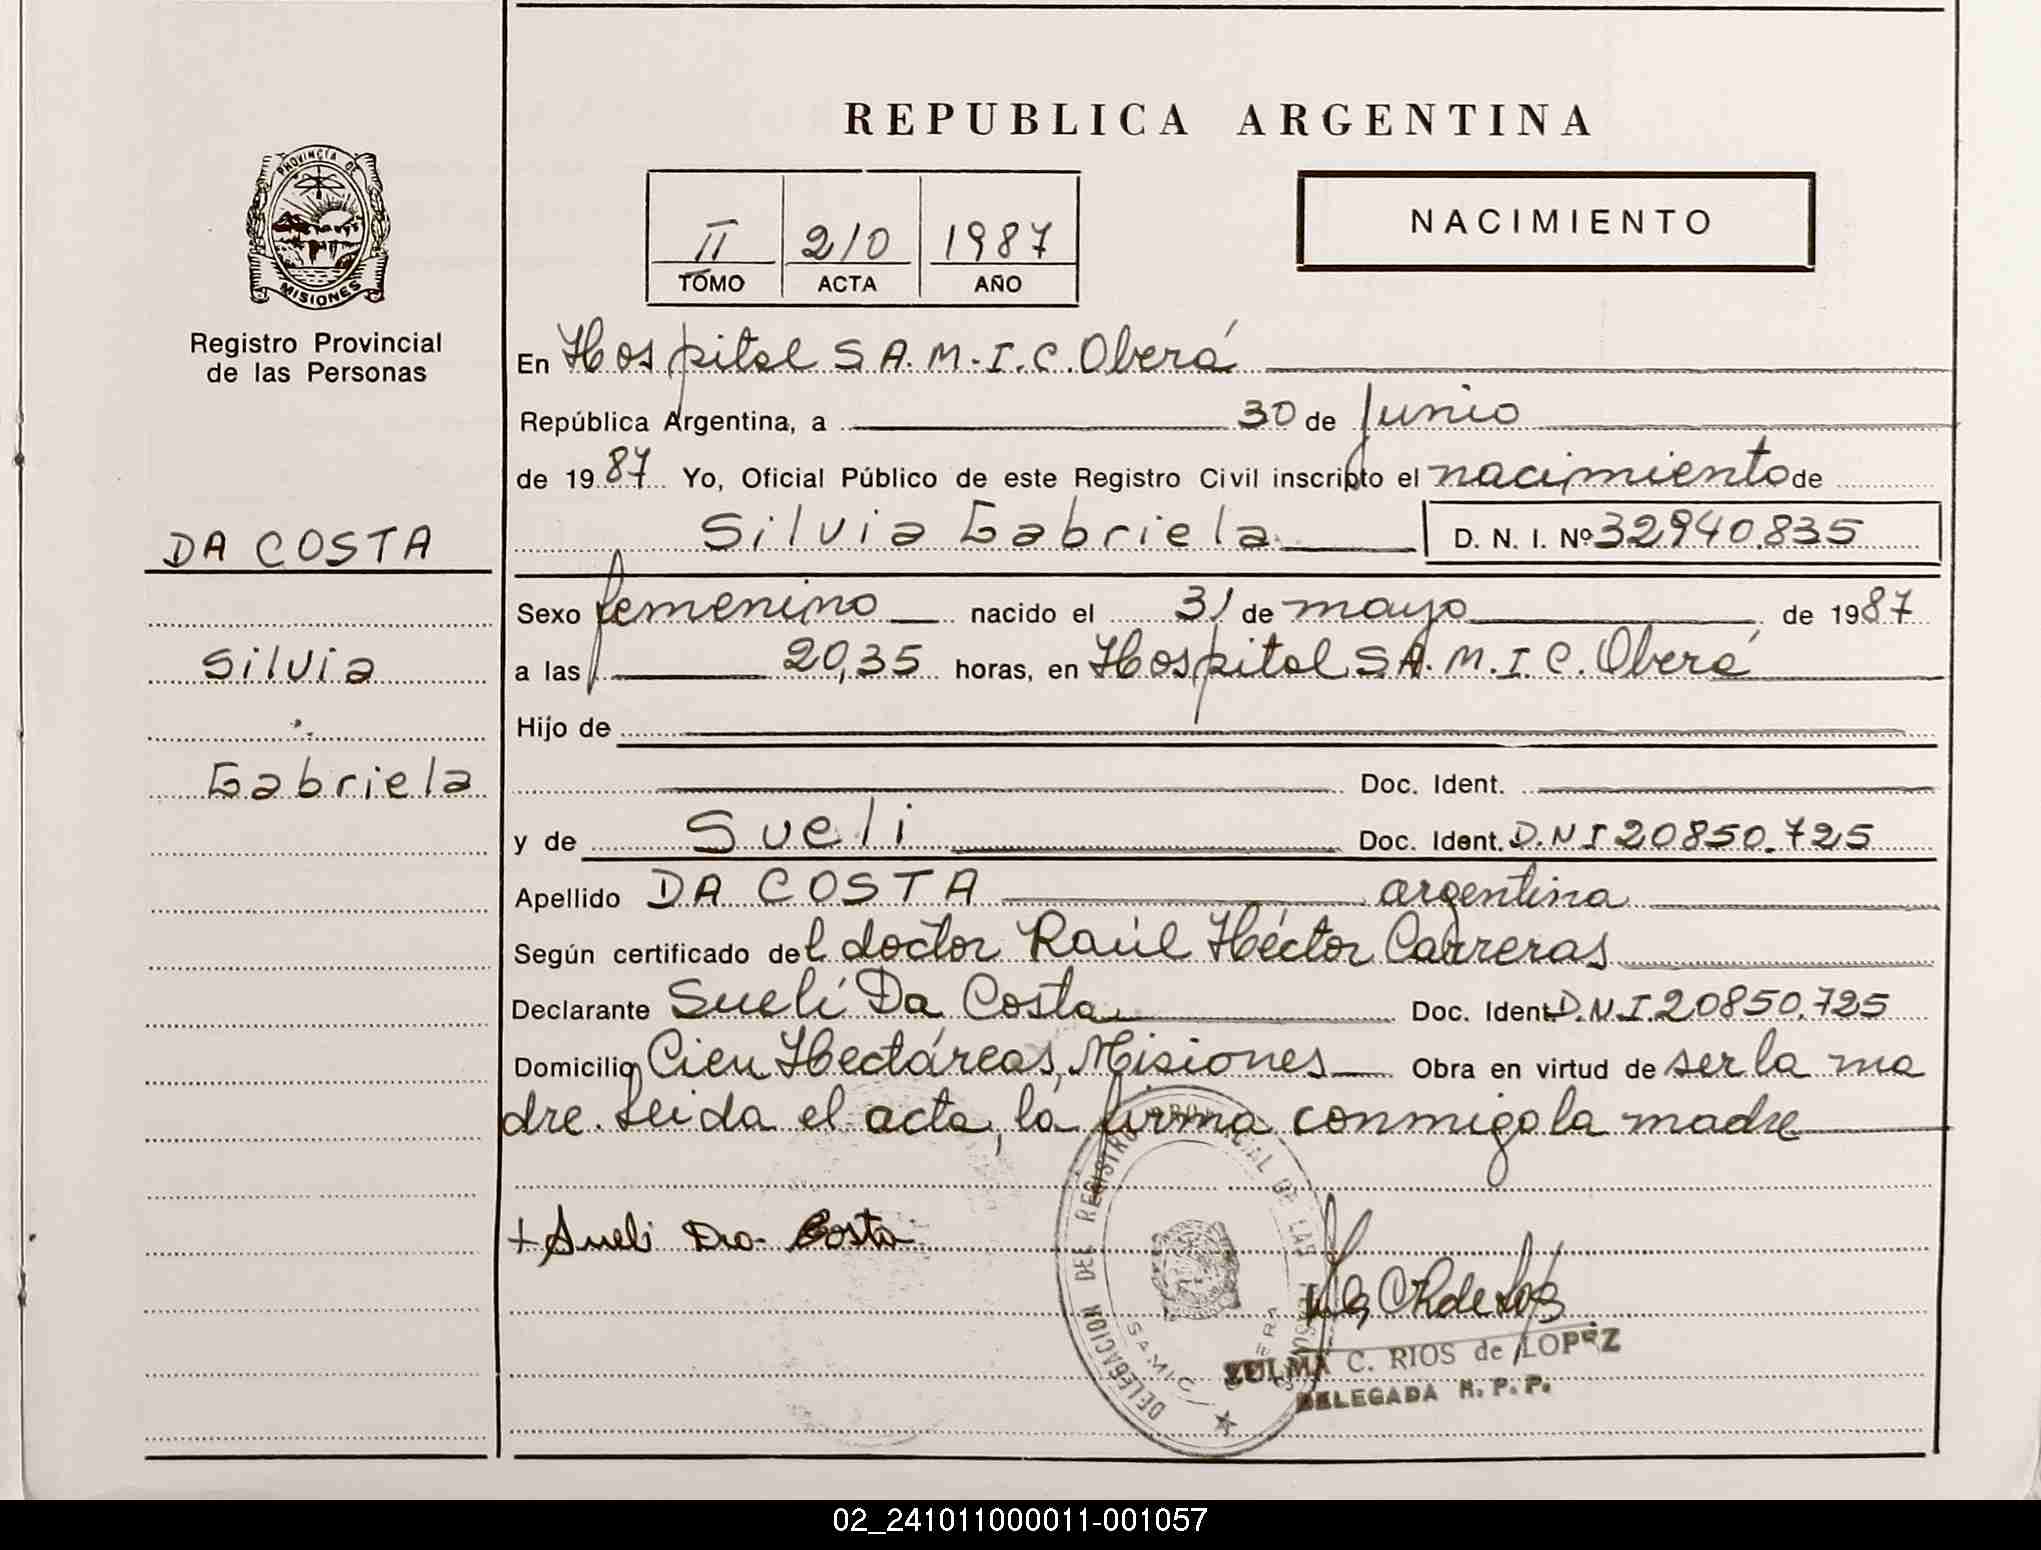 REPUBLICA ARGENTINA
PROVINCIA DE
MISIONES
Registro Provincial
de las Personas
II 210 1987
TOMO ACTA AÑO
NACIMIENTO
En Hospital S A. M. I. C. Oberá
República Argentina, a 30 de Junio
de 1987 Yo, Oficial Público de este Registro Civil inscripto el nacimiento de
Silvia Gabriela D. N. I. Nº 32940.835
DA COSTA
Silvia
Gabriela
Sexo femenino nacido el 31 de mayo de 1987
a las 20,35 horas, en Hospital S A. M. I. C. Oberá
Hijo de
Doc. Ident.
y de Sueli Doc. Ident. D.N I 20850.725
Apellido DA COSTA argentina
Según certificado del doctor Raúl Héctor Carreras
Declarante Sueli Da Costa Doc. Ident. D.N.I. 20850.725
Domicilio Cien Hectáreas, Misiones Obra en virtud de ser la ma
dre. Leida el acta, la firma conmigo la madre
+ Sueli Da Costa
DELEGACION DE REGISTRO PROVINCIAL DE LAS PERSONAS
SAMIC OBERA
ZULMA C. RIOS de LOPEZ
DELEGADA R. P. P.
02_241011000011-001057